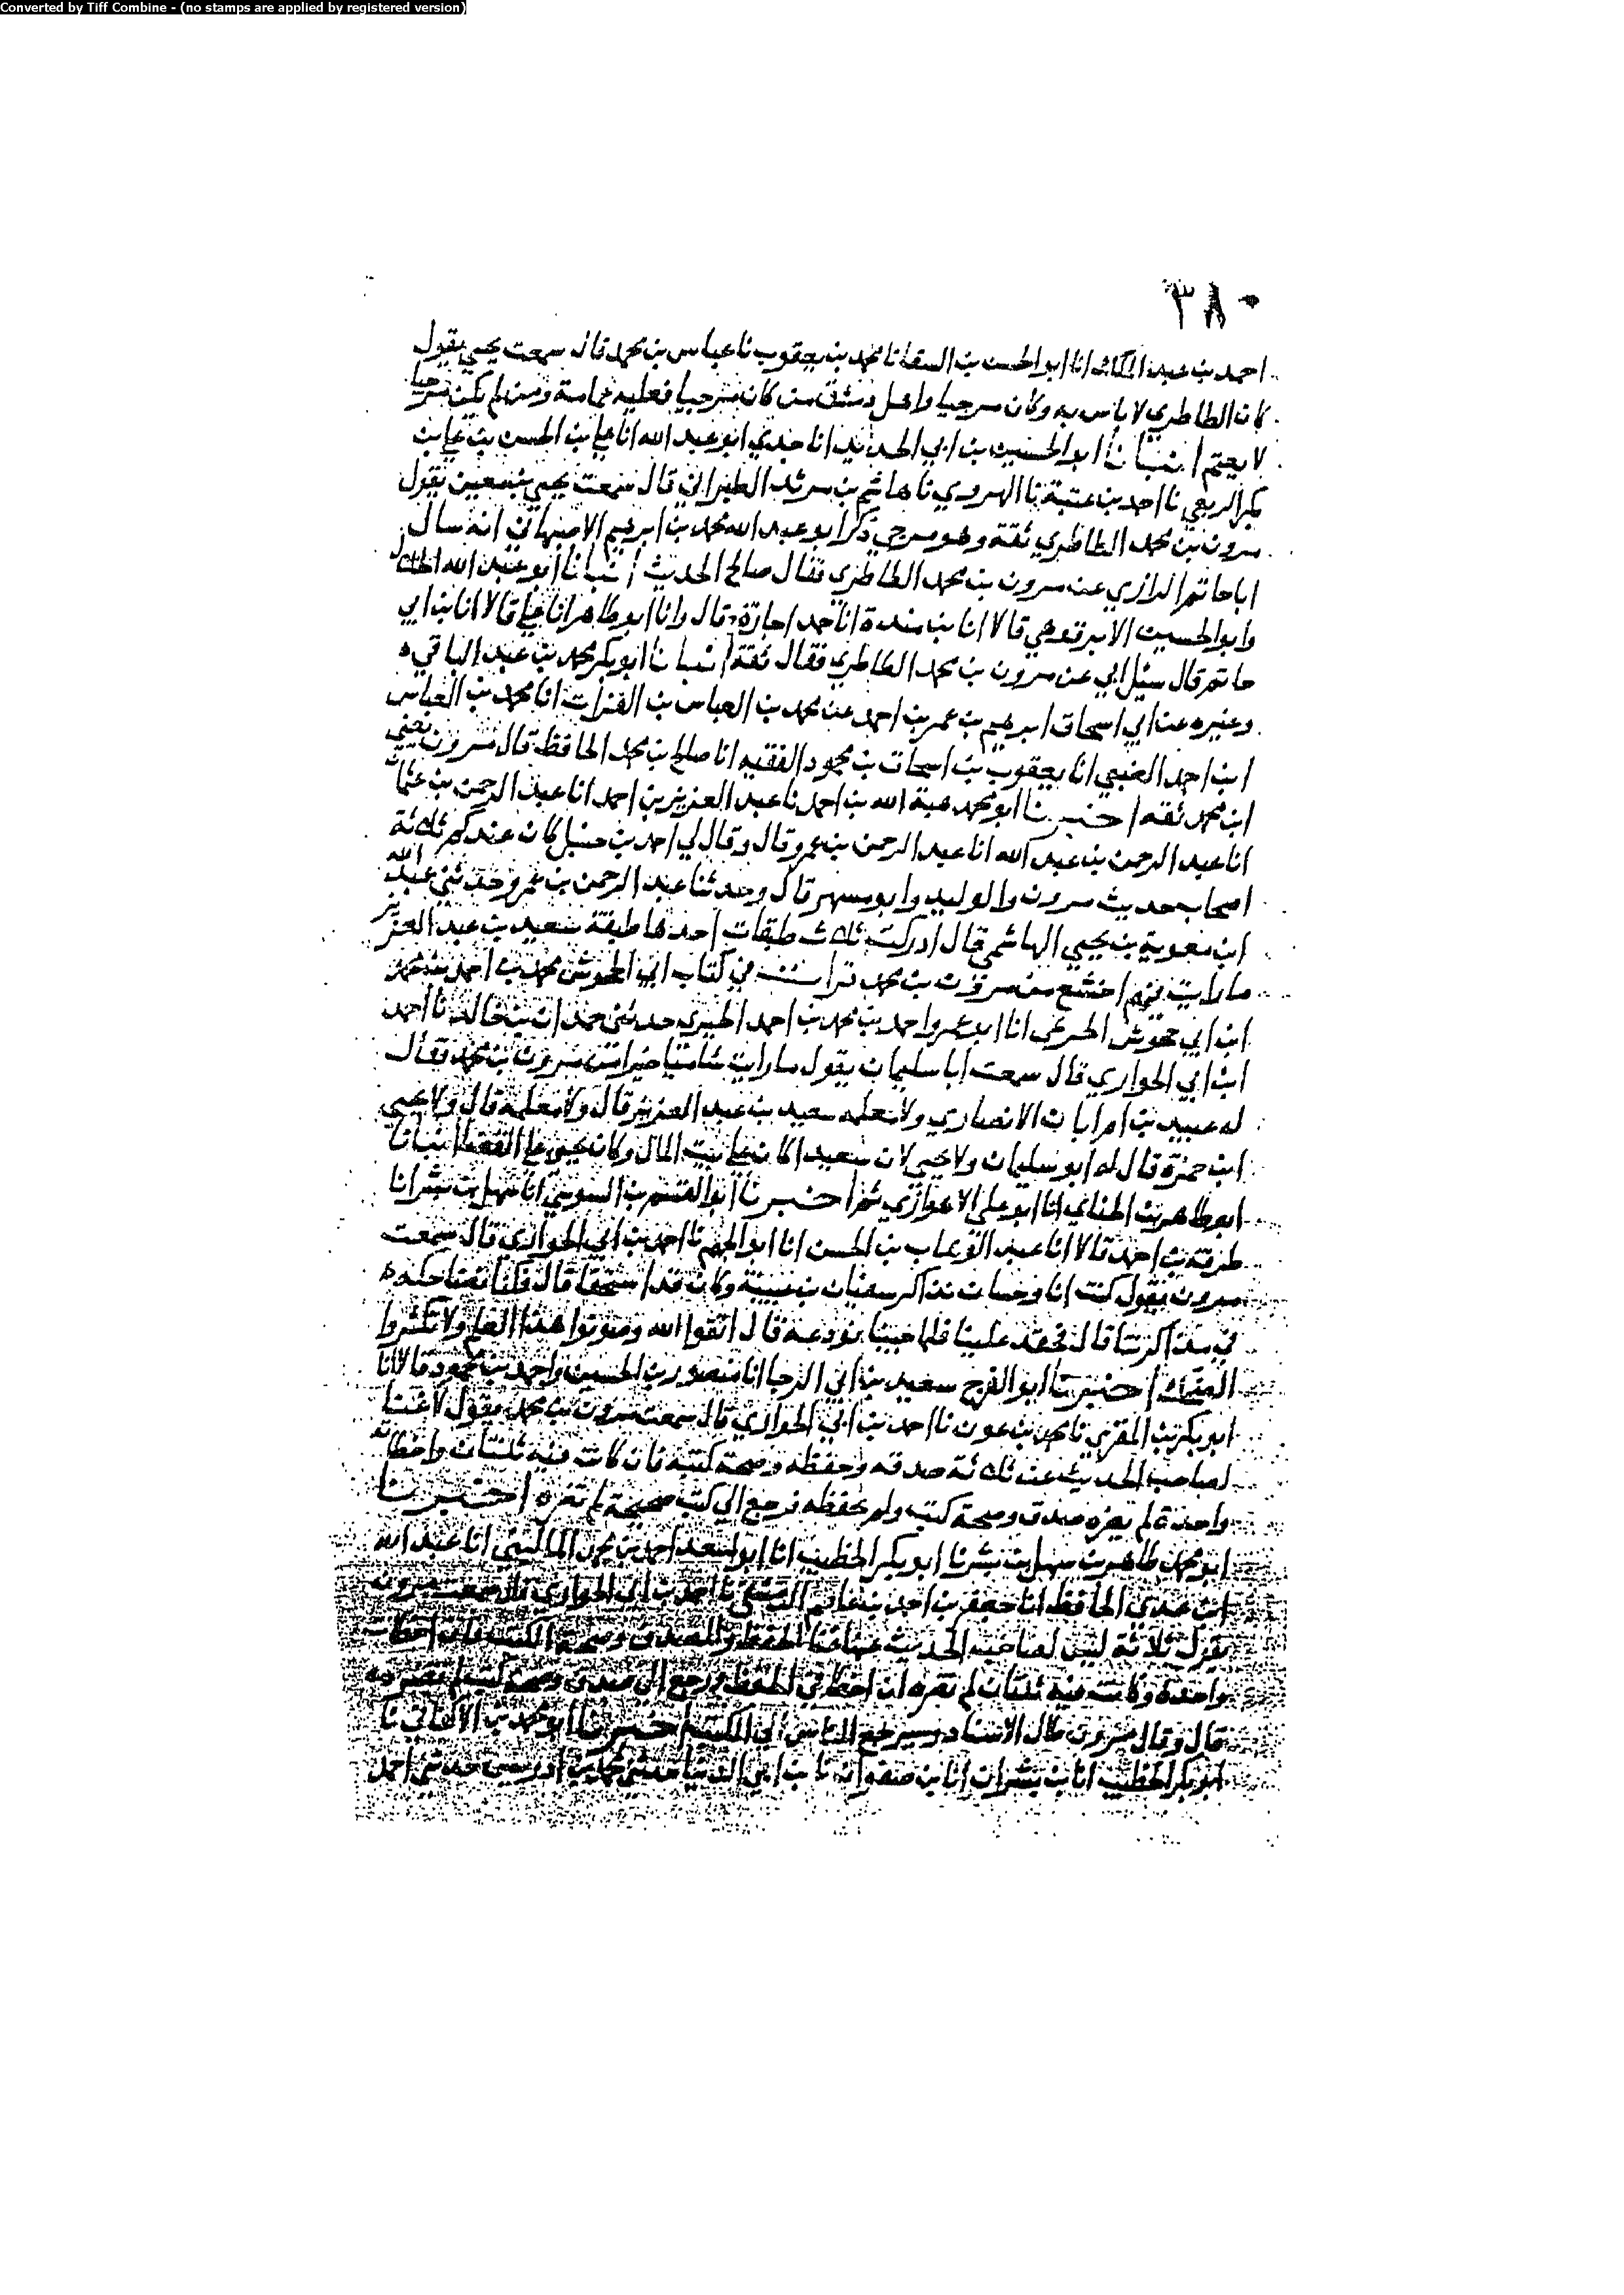 Converted by Tiff Combine - (no stamps are applied by registered version)
٣٨٠
احمد بن عبد الملك انا ابو الحسن بن السقا نا محمد بن يعقوب نا عباس بن محمد قال سمعت يحيى يقول
كان الطاطري لا باس به وكان مرجيا واهل دمشق من كان مرجيا فعليه عمامة ومن لم يكن مرجيا
لا يعتم انبانا ابو الحسين بن ابي الحديد انا جدي ابو عبد الله انا علي بن الحسن بن علي بن
بكر الربعي نا احمد بن عتبة نا الهروي نا هاشم بن مرثد الطبراني قال سمعت يحيى بن معين يقول
مرون بن محمد الطاطري ثقة وهو مرجي ذكر ابو عبد الله محمد بن ابرهيم الاصبهاني انه سال
ابا حاتم الرازي عن مرون بن محمد الطاطري فقال صالح الحديث انبانا ابو عبد الله الخلال
وابو الحسين الابرقوهي قالا انا بن مندة انا حمد اجازة قال وانا ابو طاهر انا علي قالا انا بن ابي
حاتم قال سئل ابي عن مرون بن محمد الطاطري فقال ثقة انبانا ابو بكر محمد بن عبد الباقي
وغيره عن ابي اسحاق ابرهيم بن عمر بن احمد عن محمد بن العباس بن الفرات انا محمد بن العباس
ابن احمد الضبي انا يعقوب بن اسحاق بن محمود الفقيه انا صالح بن محمد الحافظ قال مرون يعني
ابن محمد ثقه اخبرنا ابو محمد هبة الله بن احمد نا عبد العزيز بن احمد انا عبد الرحمن بن عثمان
انا عبد الرحمن بن عبد الله انا عبد الرحمن بن عمرو قال وقال لي احمد بن حنبل كان عندكم ثلاثة
اصحاب حديث مرون والوليد وابو مسهر قال وحدثنا عبد الرحمن بن عمرو حدثني عبد الله
ابن معوية بن يحيى الهاشمي قال ادركت ثلاث طبقات احدها طبقة سعيد بن عبد العزيز
ما رايت فيهم اخشع من مرون بن محمد قرات في كتاب ابي محمد بن احمد بن محمد
ابن ابي انا ابو عمرو احمد بن محمد بن احمد الحيري حدثني بن خالد نا احمد
ابن ابي الحواري قال سمعت ابا سليمان يقول ما رايت شاميا خيرا من مرون بن محمد فقال
له عبيد بن ام ابان الانصاري ولا معلمه سعيد بن عبد العزيز قال ولا معلمه قال ولا يحيى
ابن حمزة قال له ابو سليمان ولا يحيى لان سعيدا كان على بيت المال وكان يحيى على القضا انبانا
ابو طاهر بن الحنائي انا ابو علي الاهوازي ثم اخبرنا ابو القسم بن السوسي انا سهل بن بشر انا
طرفة بن احمد قالا انا عبد الوهاب بن الحسن انا ابو الجهم نا احمد بن ابي الحواري قال سمعت
مرون يقول كنت انا وحسان نذاكر سفيان بن عيينة وكان قد قال فكنا
في مذاكرتنا قال فحقد علينا فلما جينا نودعه قال اتقوا الله وصونوا هذا العلم ولا تكثروا
اخبرنا ابو الفرج سعيد بن ابي الرجا انا منصور بن الحسين واحمد بن محمود قالا انا
ابو بكر بن المقري نا محمد بن عون نا احمد بن ابي الحواري قال سمعت مرون بن محمد يقول لا غنا
لصاحب الحديث عن ثلاثة صدقه وحفظه وصحة كتبه فان كانت فيه ثنتان واخطاته
واحدة لم يضره صدق وصحة كتب ولم يحفظه فرجع الي كتب صحيحة لم تضره اخبرنا
ابو محمد طاهر بن سهل بن بشر نا ابو بكر الخطيب انا ابو سعد احمد بن محمد الماليني انا عبد الله
ابن عدي الحافظ انا جعفر بن احمد بن عاصم الدمشقي نا احمد بن ابي الحواري قال سمعت مرون
يقول ثلاثة ليس لصاحب الحديث عنها غنا الحفظ والصدق وصحة الكتب فان اخطات
واحدة وكانت فيه ثنتان لم تضره ان اخطا في الحفظ ورجع الى صدق وصحة كتب لم تضره
قال وقال مرون طال الاسناد وسيرجع الناس الى الكتب اخبرنا ابو محمد بن الاكفاني نا
ابو بكر الخطيب انا بن بشران انا بن صفوان نا بن ابي الدنيا حدثني محمد بن ادريس حدثني احمد